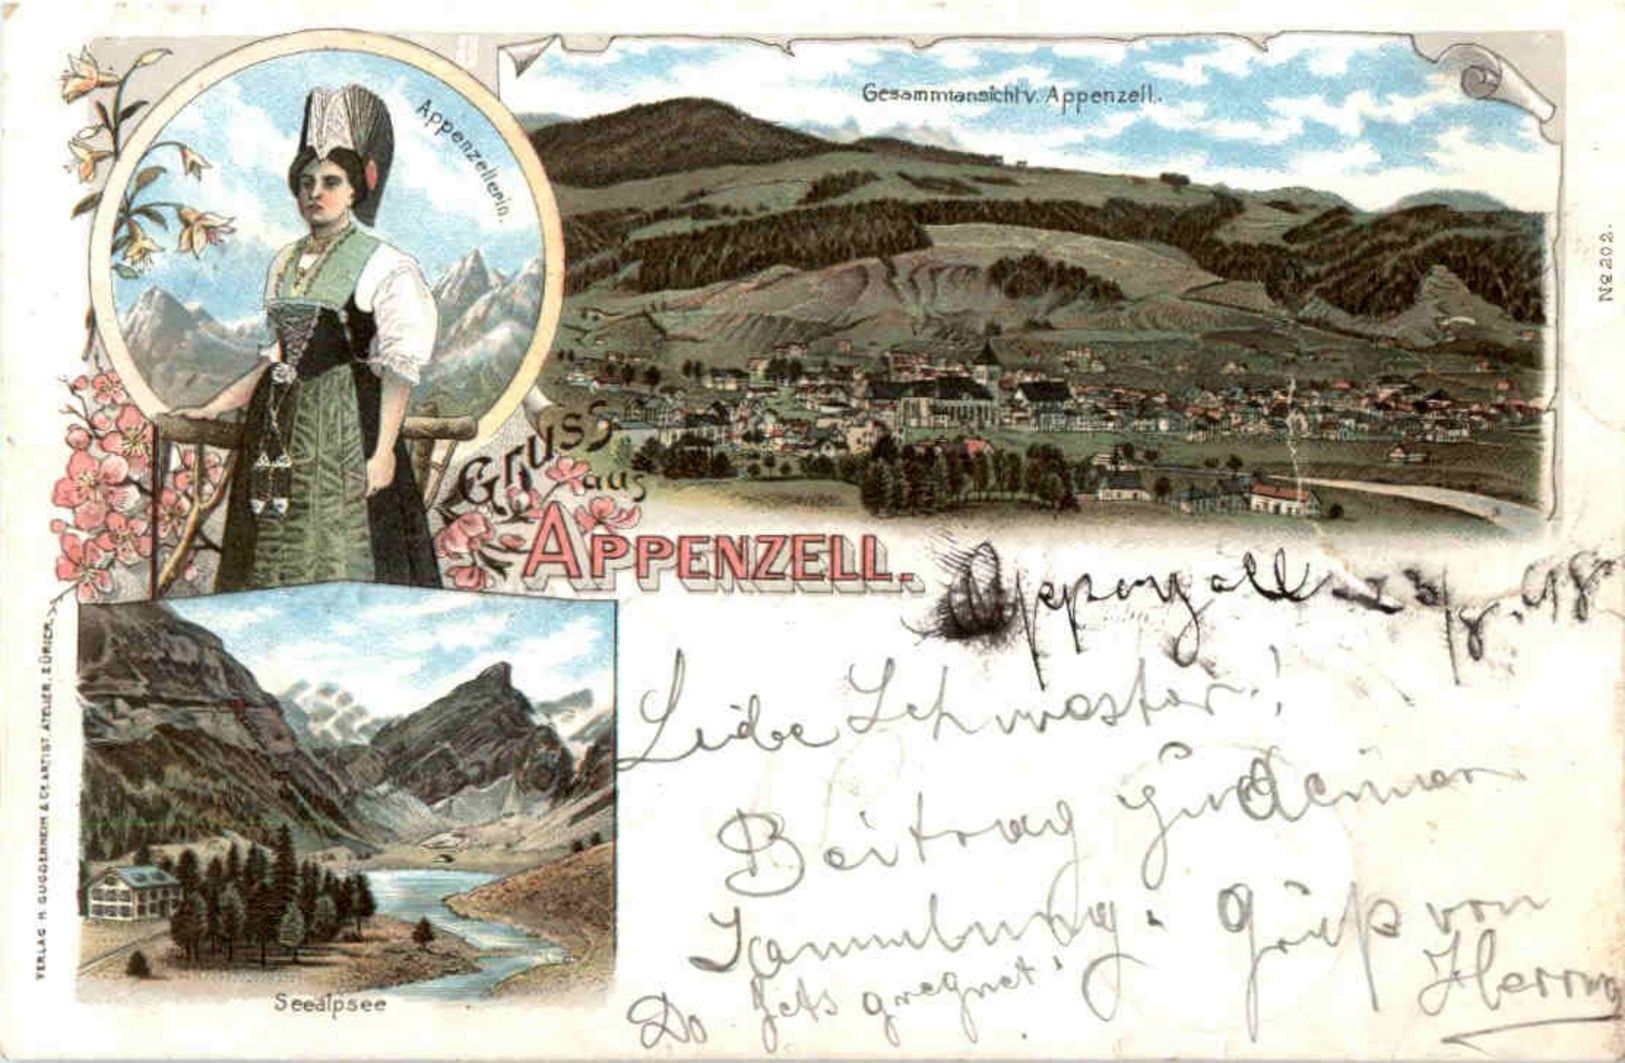 Appenzellerin.
Gesammtansicht v. Appenzell.
No 202.
Gruss
aus
APPENZELL.
Appenzell 23/8. 98
Liebe Schwester!
Beitrag zu Deiner
Sammlung. Gruß von
Do hets gregnet!
Seealpsee
VERLAG H. GUGGENHEIM & Co ARTIST. ATELIER, ZÜRICH.